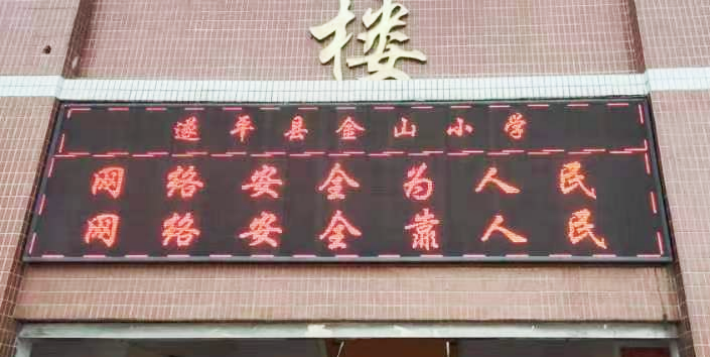 楼
遂平县金山小学
网络安全为人民
网络安全靠人民